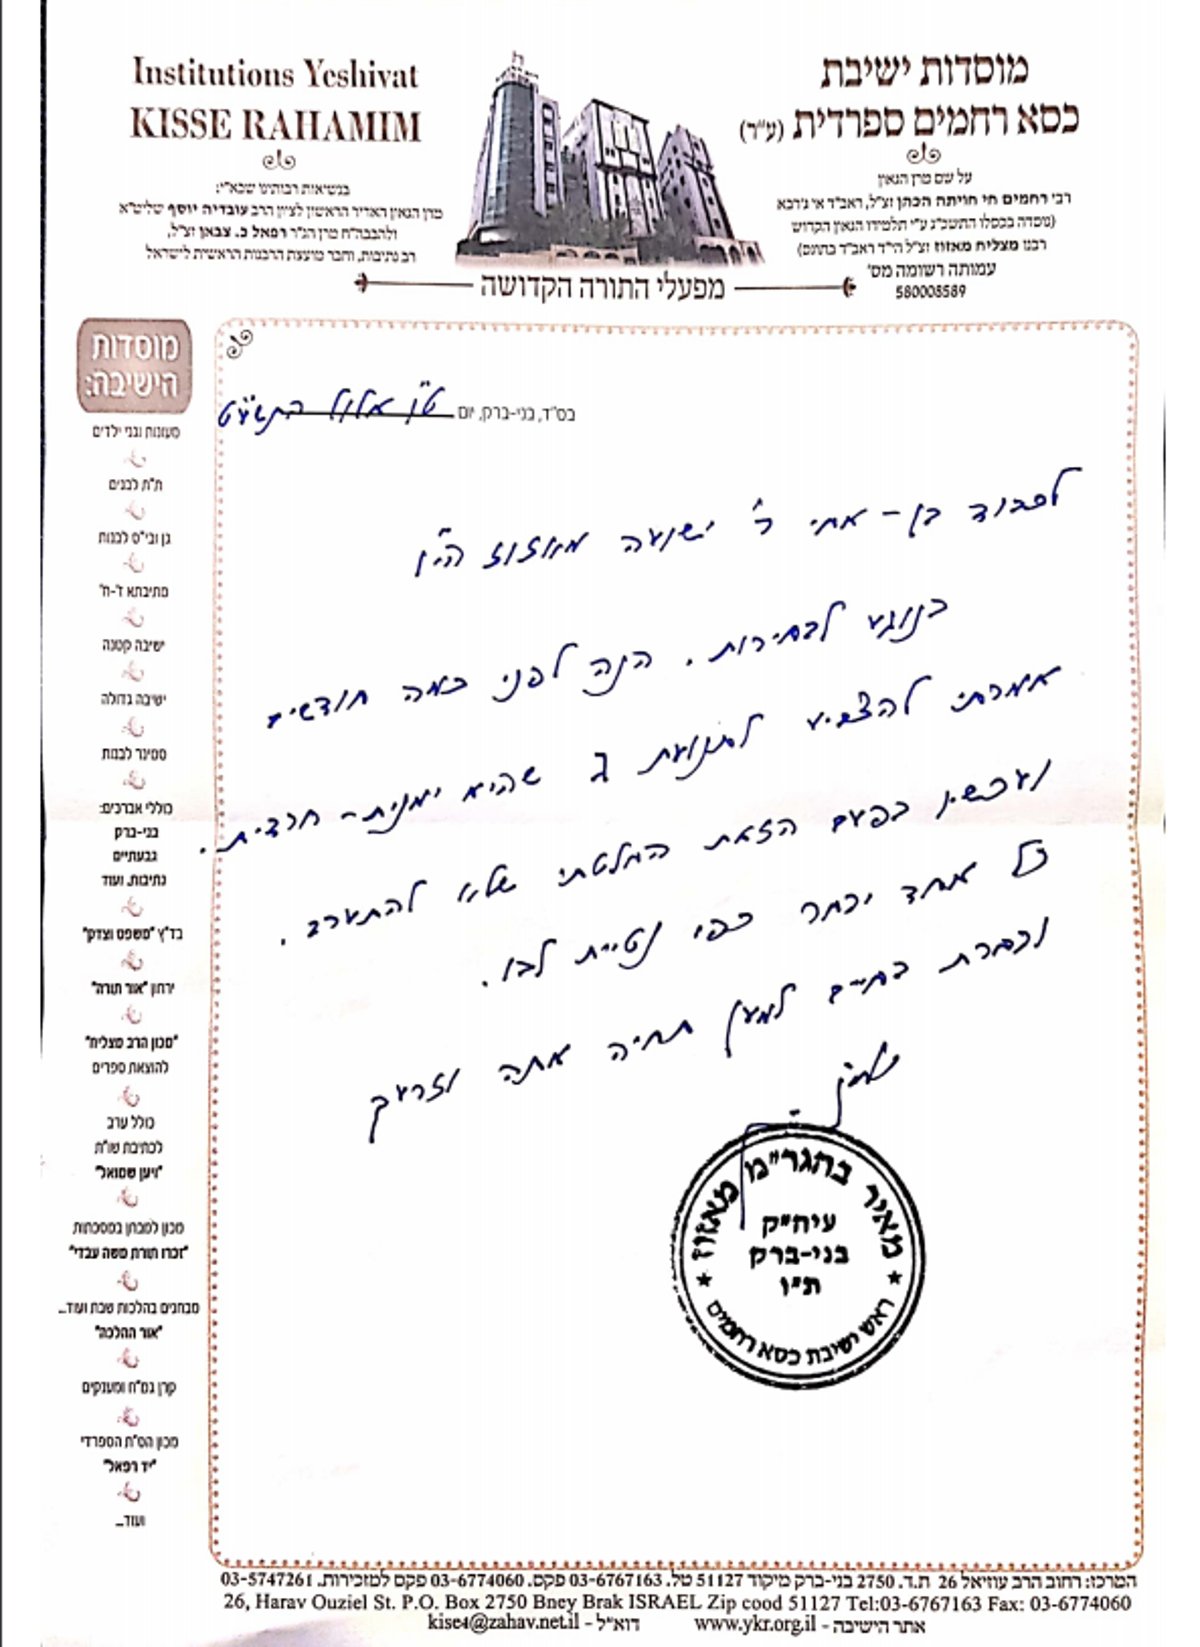 Institutions Yeshivat
KISSE RAHAMIM
בנשיאות רבותינו שכא"י:
מרן הגאון האדיר הראשון לציון הרב עובדיה יוסף שליט"א
ולהבבה"ח מרן הג"ר רפאל כ. צבאן זצ"ל,
רב נתיבות, וחבר מועצת הרבנות הראשית לישראל
מוסדות ישיבת
כסא רחמים ספרדית (ע"ר)
על שם מרן הגאון
רבי רחמים חי חויתה הכהן זצ"ל, ראב"ד אי ג'רבא
(נוסדה בכסלו התשכ"ג ע"י תלמידו הגאון הקדוש
רבנו מצליח מאזוז זצ"ל הי"ד ראב"ד בתונס)
עמותה רשומה מס'
580008589
מפעלי התורה הקדושה
בס"ד, בני-ברק, יום ט"ו אלול התשע"ט
לכבוד בן-אחי ר' ישועה מאזוז הי"ו
בנוגע לבחירות. הנה לפני כמה חודשים
אמרתי להצביע לתנועת ג שהיא ימנית-חרדית.
ועכשיו בפעם הזאת החלטתי שלא להתערב.
כל אחד יבחר כפי נטיית לבו.
ובחרת בחיים למען תחיה אתה וזרעך
מאיר בהגר"מ מאזוז
עיח"ק
בני-ברק
ת"ו
ראש ישיבת כסא רחמים
מוסדות
הישיבה:
מעונות וגני ילדים
ת"ת לבנים
גן ובי"ס לבנות
מתיבתא ז'-ח'
ישיבה קטנה
ישיבה גדולה
סמינר לבנות
כוללי אברכים:
בני-ברק
גבעתיים
נתיבות, ועוד
בד"ץ "משפט וצדק"
ירחון "אור תורה"
"מכון הרב מצליח"
להוצאת ספרים
כולל ערב
לכתיבת שו"ת
"ויען שמואל"
מכון למבחן במסכתות
"זכרו תורת משה עבדי"
מבחנים בהלכות שבת ועוד...
"אור ההלכה"
קרן גמ"ח ומענקים
מכון הס"ת הספרדי
"יד רפאל"
ועוד...
המרכז: רחוב הרב עוזיאל 26 ת.ד. 2750 בני-ברק מיקוד 51127 טל. 03-6767163 פקס. 03-6774060 פקס למזכירות. 03-5747261
26, Harav Ouziel St. P.O. Box 2750 Bney Brak ISRAEL Zip cood 51127 Tel:03-6767163 Fax: 03-6774060
אתר הישיבה - www.ykr.org.il דוא"ל - kise4@zahav.net.il